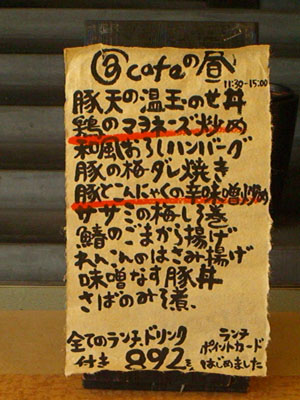 cafeの昼
11:30-15:00
豚天の温玉のせ丼
鶏のマヨネーズ炒め
和風おろしハンバーグ
豚の梅ダレ焼き
豚とこんにゃくの辛味噌炒め
ササミの梅しそ巻
鯖のごまから揚げ
れんこんのはさみ揚げ
味噌なす豚丼
さばのみそ煮.
全てのランチ、ドリンク
付き 892
ランチ
ポイントカード
はじめました